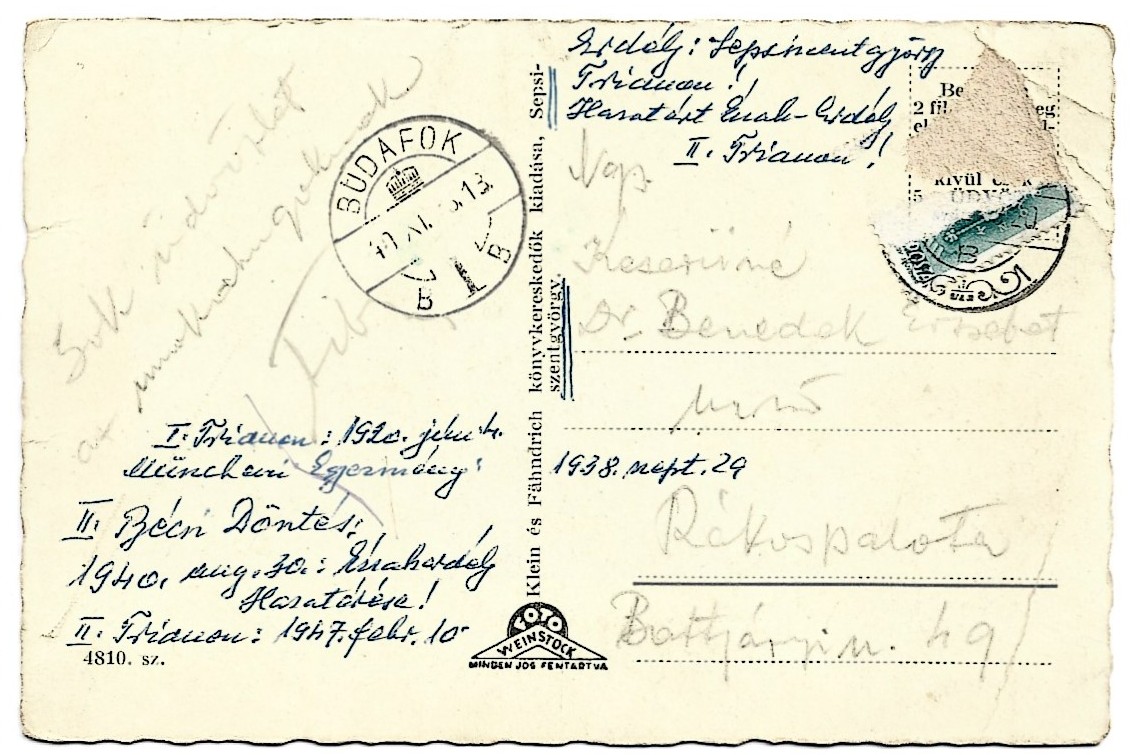 Erdély: Sepsiszentgyörgy
Trianon!
Hazatért Észak-Erdély
II. Trianon!
Be
2 fil
eg
el
kívül csak
5
ÜDV
BUDAFOK
B
1
B
Sok üdvözlet
az unokahugoknak
Tibi
Klein és Fähndrich könyvkereskedők kiadása, Sepsi-
szentgyörgy.
Keserüné
Dr. Benedek Erzsébet
urnő
Rákospalota
49
I. Trianon: 1920. jún. 4.
Müncheni Egyezmény:
1938. szept. 29
II. Bécsi Döntés:
1940. aug. 30.: Északerdély
Hazatérése!
II. Trianon: 1947. febr. 10
4810. sz.
FOTO
WEINSTOCK
MINDEN JOG FENTARTVA